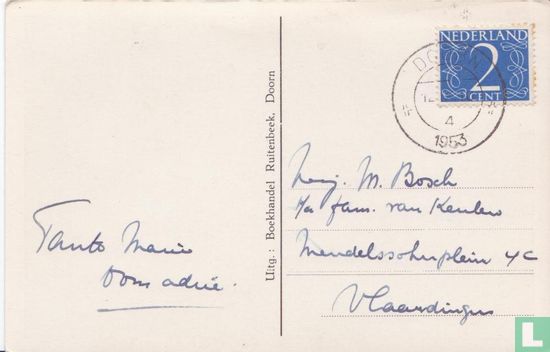 NEDERLAND
2
CENT
DOORN
12
4
1953
Uitg.: Boekhandel Ruitenbeek, Doorn
Tante Marie
oom adrie.
M. Bosch
p/a fam. van Keulen
Mendelssohnplein 4C
Vlaardingen